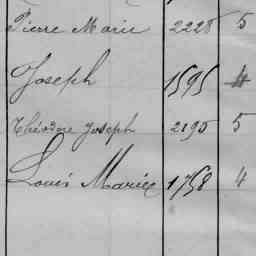 Pierre Marie 2228 5
Joseph 1595 4
Théodore Joseph 2195 5
Louis Marie 1758 4